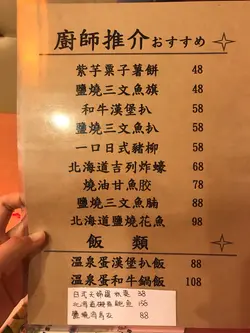 廚師推介おすすめ
紫芋粟子薯餅 48
鹽燒三文魚旗 48
和牛漢堡扒 58
鹽燒三文魚扒 58
一口日式豬柳 58
北海道吉列炸蠔 68
燒油甘魚胶 78
鹽燒三文魚腩 88
北海道鹽燒花魚 98
飯類
溫泉蛋漢堡扒飯 88
溫泉蛋和牛鍋飯 108
日式天婦羅 38
北海道 鮑魚 158
鹽燒 88